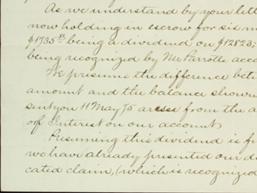 As we understand by your lett
now holding in escrow for six m
being a dividend on $12823;
being recognized by Mr Parrotts acco
We presume the difference betw
amount and the balance shown
sent you 11 May 75 arises from the a
of Interest on our account
Presuming this dividend is fr
we have already presented our d
cated claim, (which is recognized